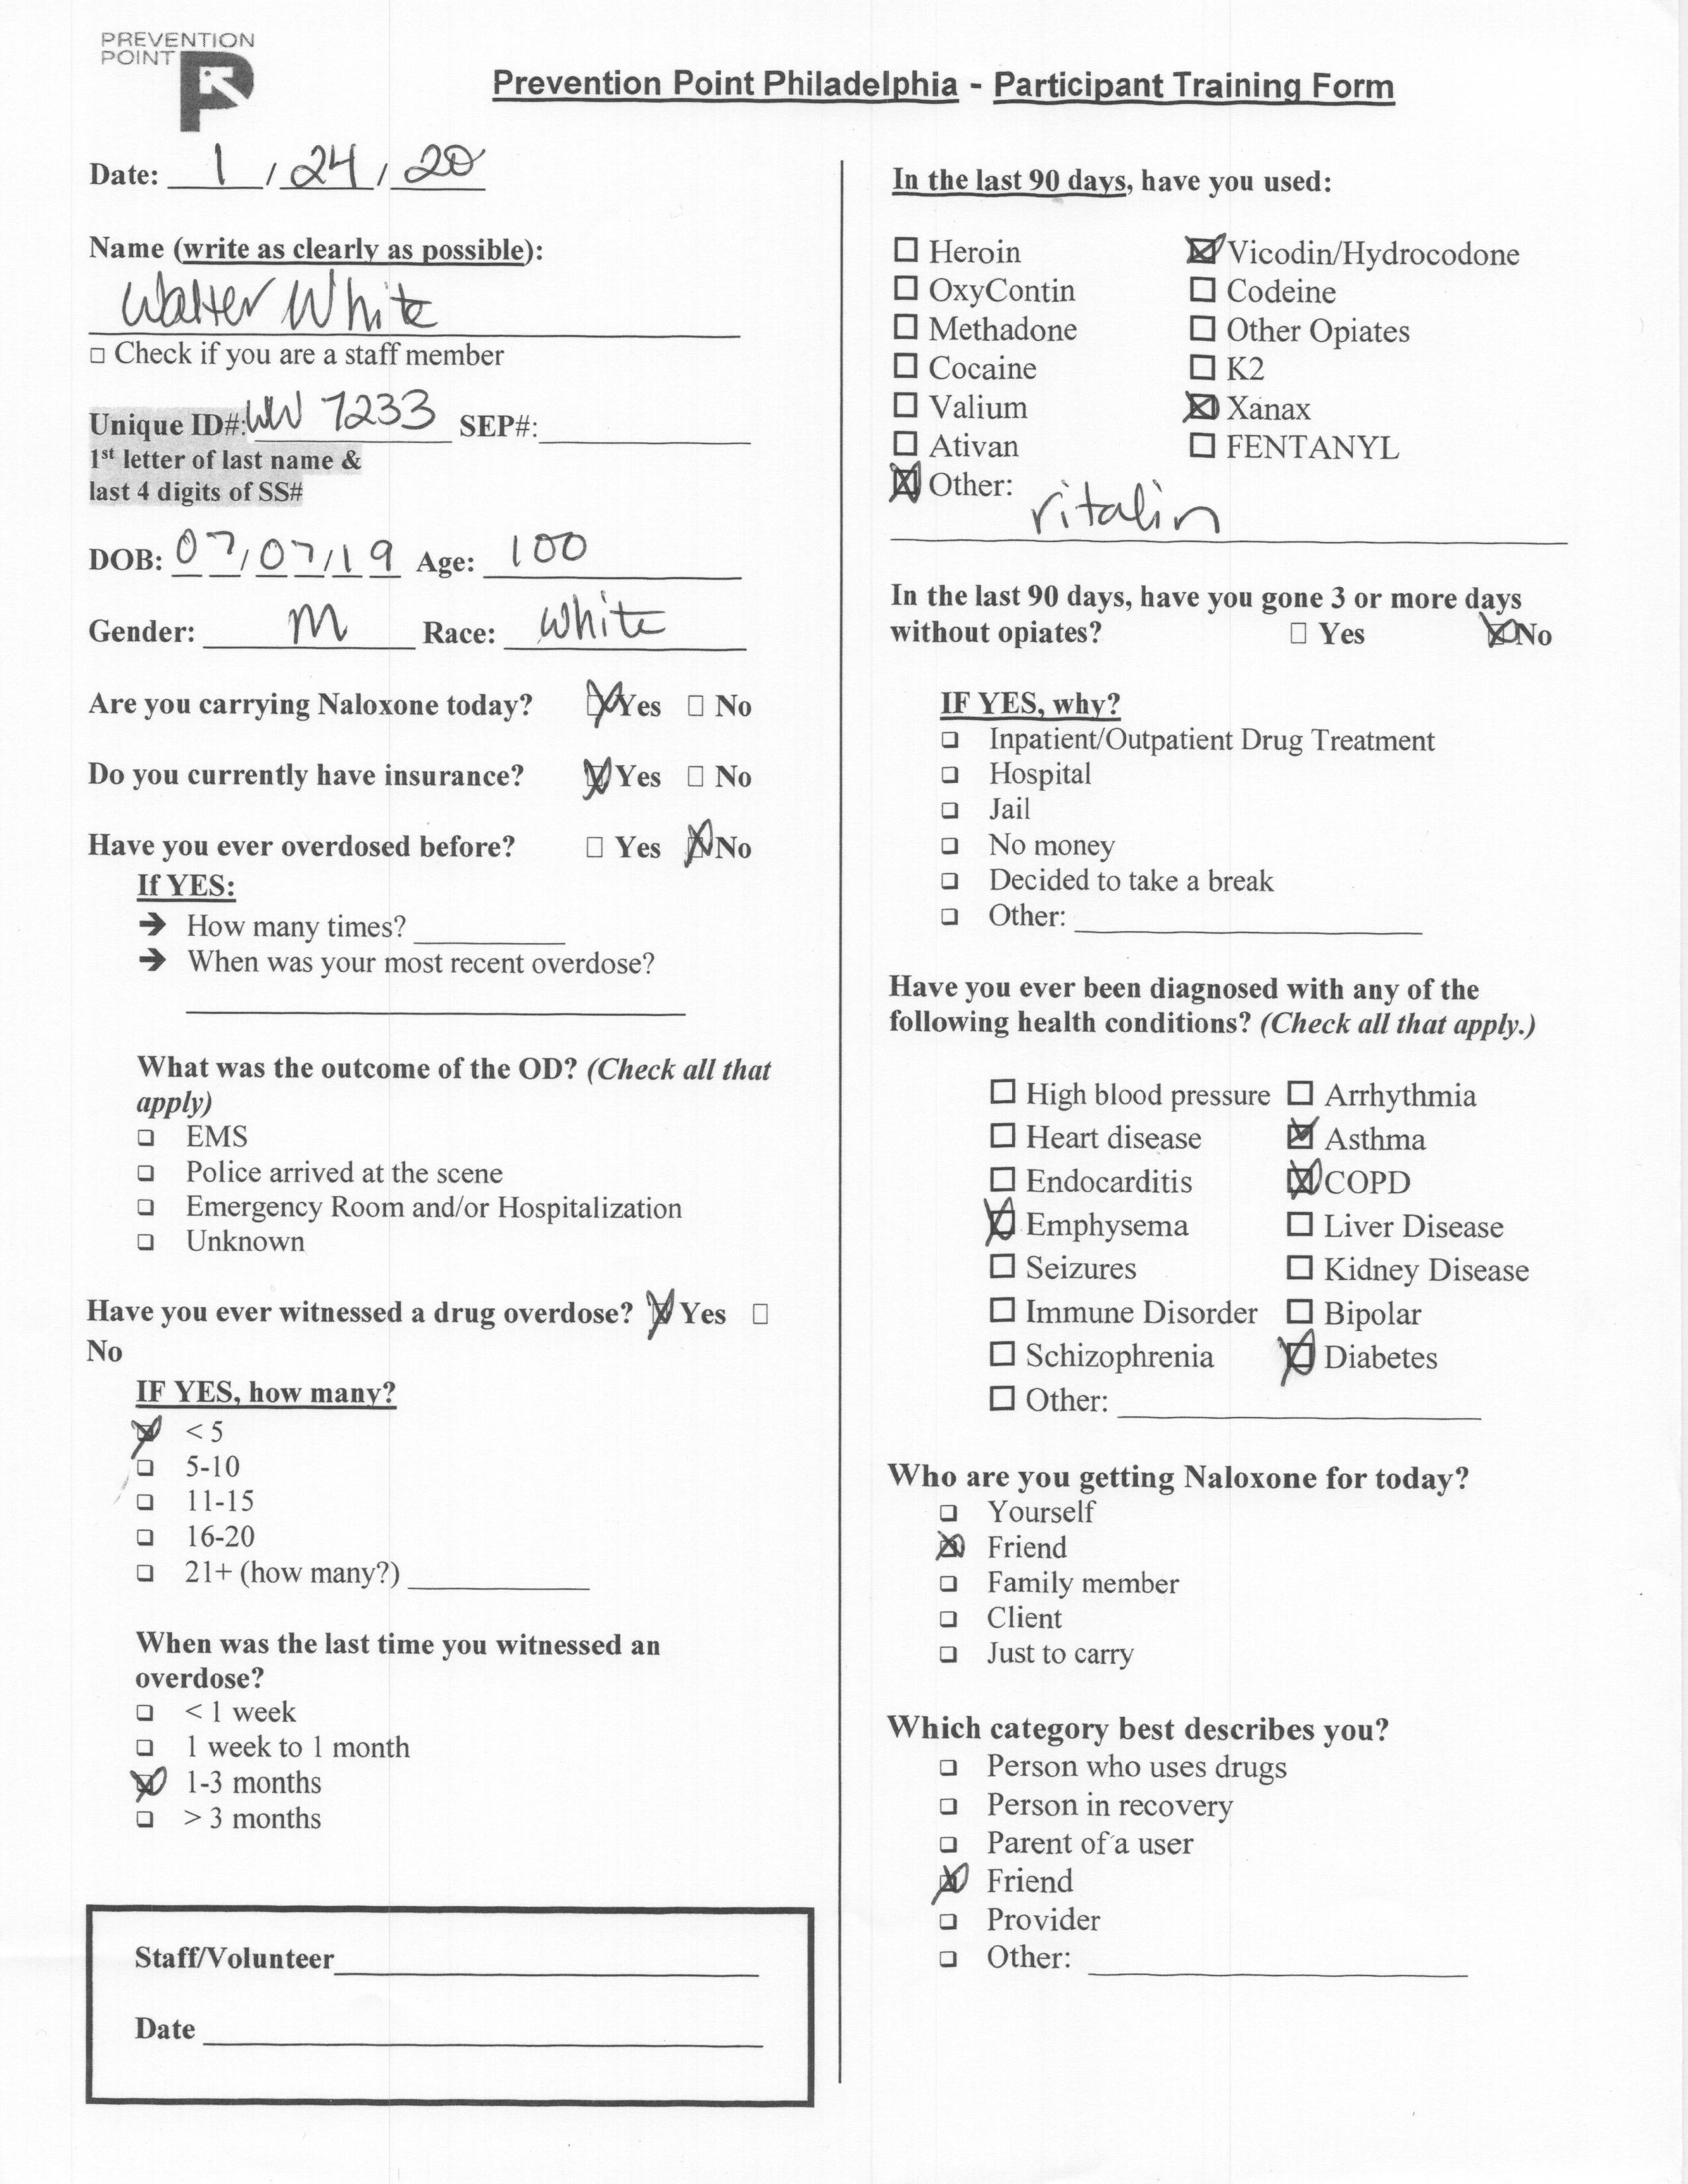 PREVENTION
POINT
Prevention Point Philadelphia - Participant Training Form
Date: 1 / 24 / 20
Name (write as clearly as possible):
Walter White
☐ Check if you are a staff member
Unique ID#: WW 7233 SEP#:
1st letter of last name &
last 4 digits of SS#
DOB: 07/07/19 Age: 100
Gender: M Race: White
Are you carrying Naloxone today? ☒ Yes ☐ No
Do you currently have insurance? ☒ Yes ☐ No
Have you ever overdosed before? ☐ Yes ☒ No
If YES:
➔ How many times?
➔ When was your most recent overdose?
What was the outcome of the OD? (Check all that
apply)
☐ EMS
☐ Police arrived at the scene
☐ Emergency Room and/or Hospitalization
☐ Unknown
Have you ever witnessed a drug overdose? ☒ Yes ☐
No
IF YES, how many?
☒ < 5
☐ 5-10
☐ 11-15
☐ 16-20
☐ 21+ (how many?)
When was the last time you witnessed an
overdose?
☐ < 1 week
☐ 1 week to 1 month
☒ 1-3 months
☐ > 3 months
Staff/Volunteer
Date
In the last 90 days, have you used:
☐ Heroin ☒ Vicodin/Hydrocodone
☐ OxyContin ☐ Codeine
☐ Methadone ☐ Other Opiates
☐ Cocaine ☐ K2
☐ Valium ☒ Xanax
☐ Ativan ☐ FENTANYL
☒ Other: ritalin
In the last 90 days, have you gone 3 or more days
without opiates? ☐ Yes ☒ No
IF YES, why?
☐ Inpatient/Outpatient Drug Treatment
☐ Hospital
☐ Jail
☐ No money
☐ Decided to take a break
☐ Other:
Have you ever been diagnosed with any of the
following health conditions? (Check all that apply.)
☐ High blood pressure ☐ Arrhythmia
☐ Heart disease ☒ Asthma
☐ Endocarditis ☒ COPD
☒ Emphysema ☐ Liver Disease
☐ Seizures ☐ Kidney Disease
☐ Immune Disorder ☐ Bipolar
☐ Schizophrenia ☒ Diabetes
☐ Other:
Who are you getting Naloxone for today?
☐ Yourself
☒ Friend
☐ Family member
☐ Client
☐ Just to carry
Which category best describes you?
☐ Person who uses drugs
☐ Person in recovery
☐ Parent of a user
☒ Friend
☐ Provider
☐ Other: